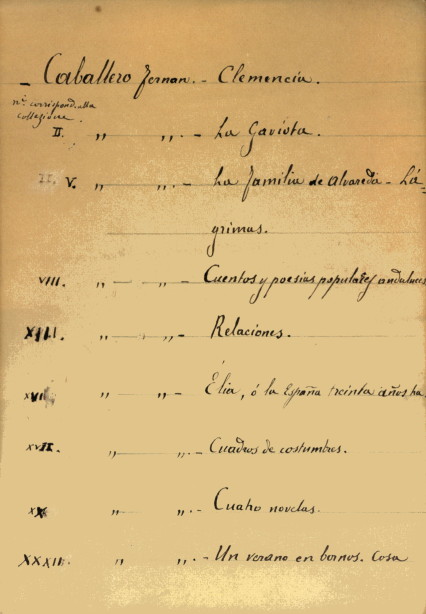 - Caballero Fernan. - Clemencia.
nº. correspond. alla
collezione.
II. " " . - La Gaviota.
II. V. " " . - La familia de Alvareda - Lá=
grimas.
VIII. " - " - Cuentos y poesias populares andaluces
XIII. " " - Relaciones.
XVII " " - Élia, ó la España treinta años ha,
XVII. " " . - Cuadros de costumbres.
XX " " . - Cuatro novelas.
XXXII. " " . - Un verano en bornos. Cosa